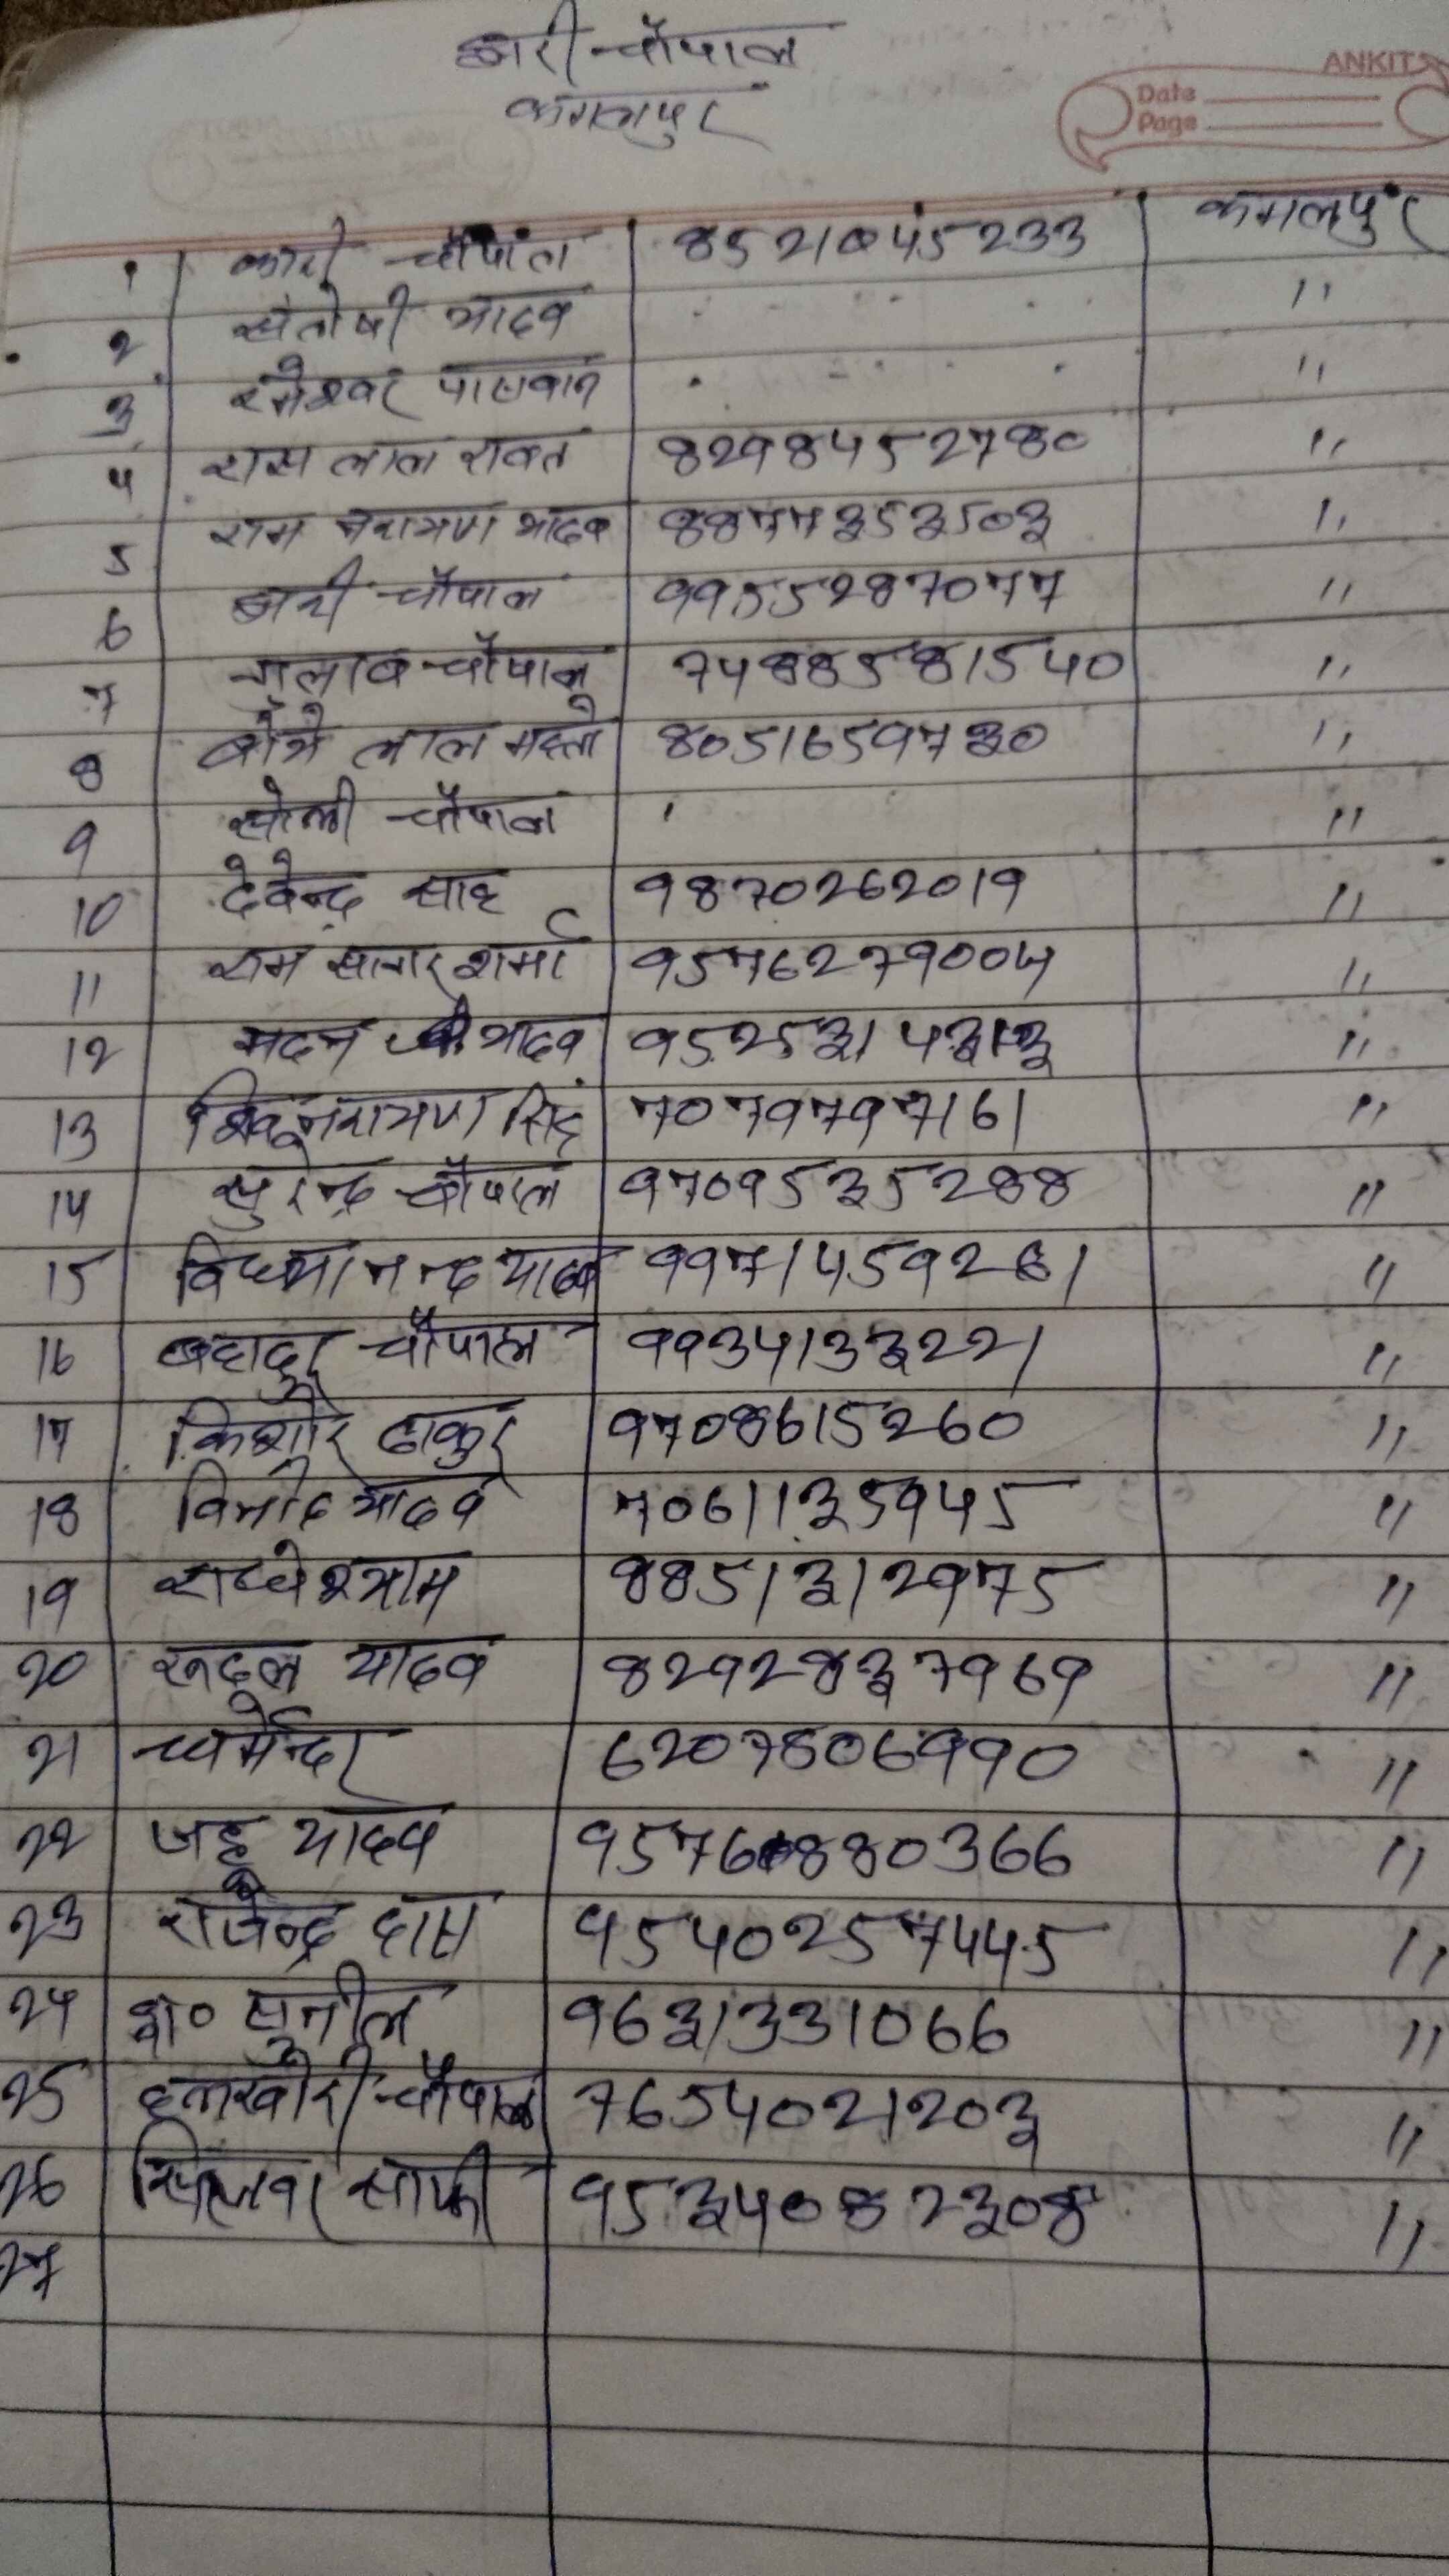 बारी चौपाल
कमलपुर
ANKIT
Date
Page
1 कारी चौपाल 8521045233 कमलपुर
2 संतोषी यादव "
3 रमेश्वर पासवान "
4 राम लाल रावत 8298452780 "
5 राम नरायण यादव 8877353503 "
6 बारी चौपाल 9955287077 "
7 गुलाब चौपाल 74885581540 "
8 लाल महतो 8051659730 "
9 सोली चौपाल "
10 देवेन्द्र साह 9870262019 "
11 राम सागर शर्मा 9576279004 "
12 मदन यादव "
13 नरायण सिंह 7079797161 "
14 सुरेन्द्र चौपाल 9709535288 "
15 विध्यानन्द यादव 9971459261 "
16 बहादुर चौपाल 9934133221 "
17 किशोर ठाकुर 9708615260 "
18 विनोद यादव 7061135945 "
19 राधेश्याम 8851312975 "
20 रूदल यादव 8292837969 "
21 धर्मेन्दर 6207506990 "
22 जद्दू यादव 9576880366 "
23 राजेन्द्र दास 9540257445 "
24 डा० सुनील 9631331066 "
25 हलखोरी चौपाल 7654021203 "
26 साफी 9534082308 "
27